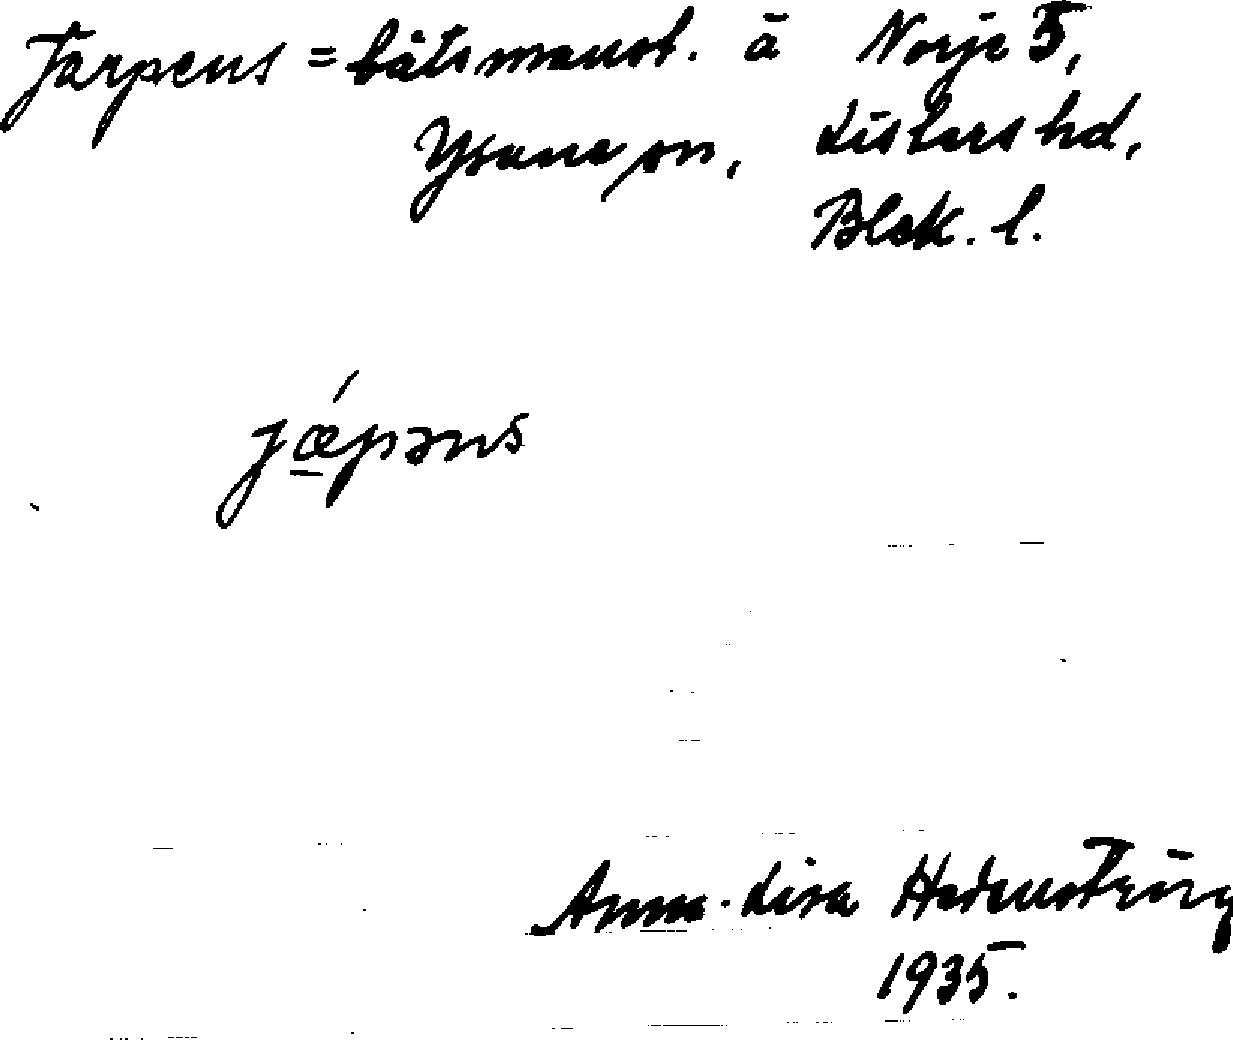 Jarpens = båtsmanst. å Norje 5,
Ysane sn, Listers hd,
Blek. l.
jǽ̠pəns
Anna-Lisa Hedenström
1935.